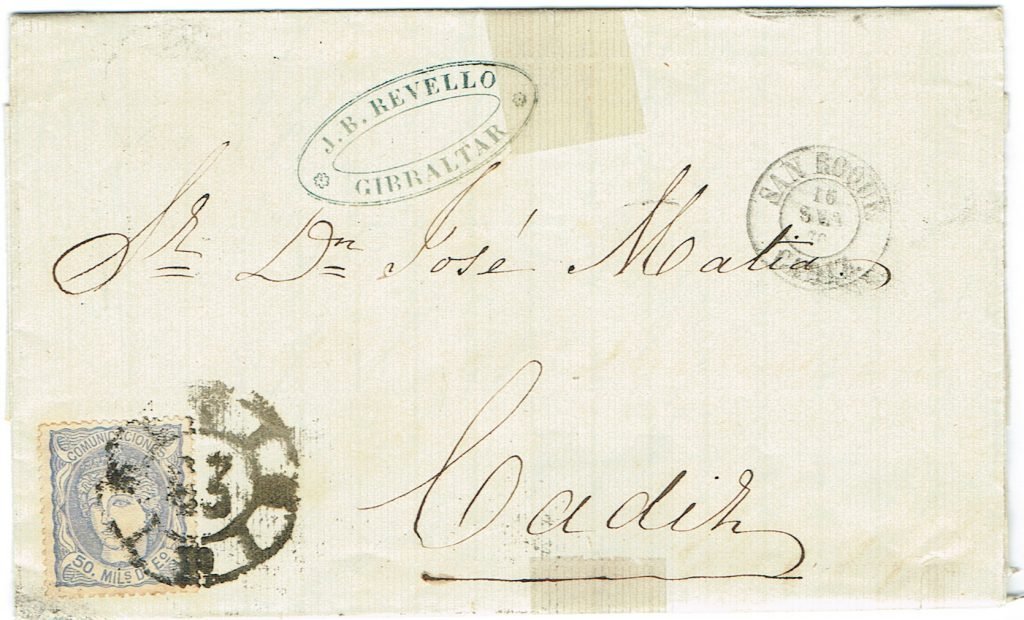 J. B. REVELLO
GIBRALTAR
SAN ROQUE
16
SET
Sr. Dn. José Matia.
Cadiz
COMUNICACIONES
63
50. MILS DE Eo